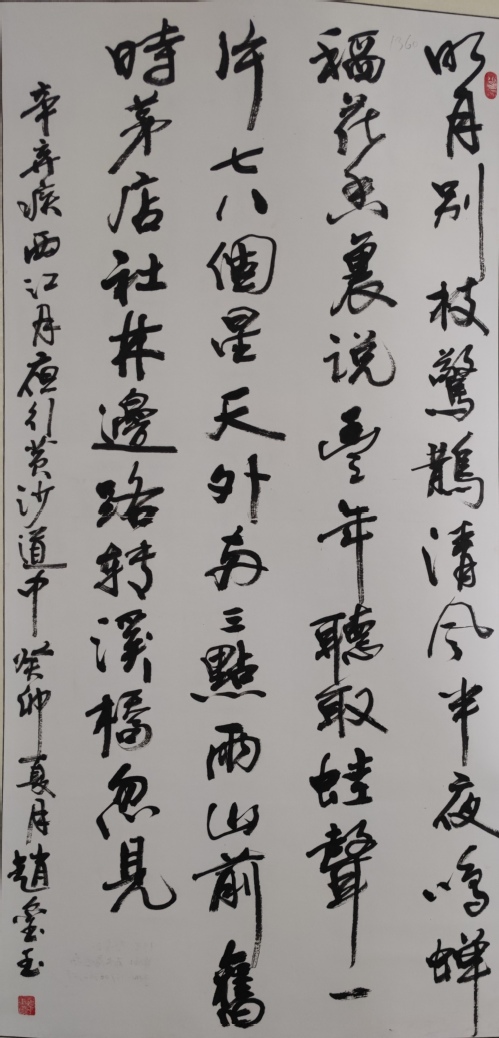 明月别枝驚鵲清风半夜鸣蝉
稻花香裏说豐年聽取蛙聲一
片七八個星天外两三點雨山前舊
時茅店社林邊路转溪橋忽見
辛弃疾西江月夜行黄沙道中癸卯夏月趙玉